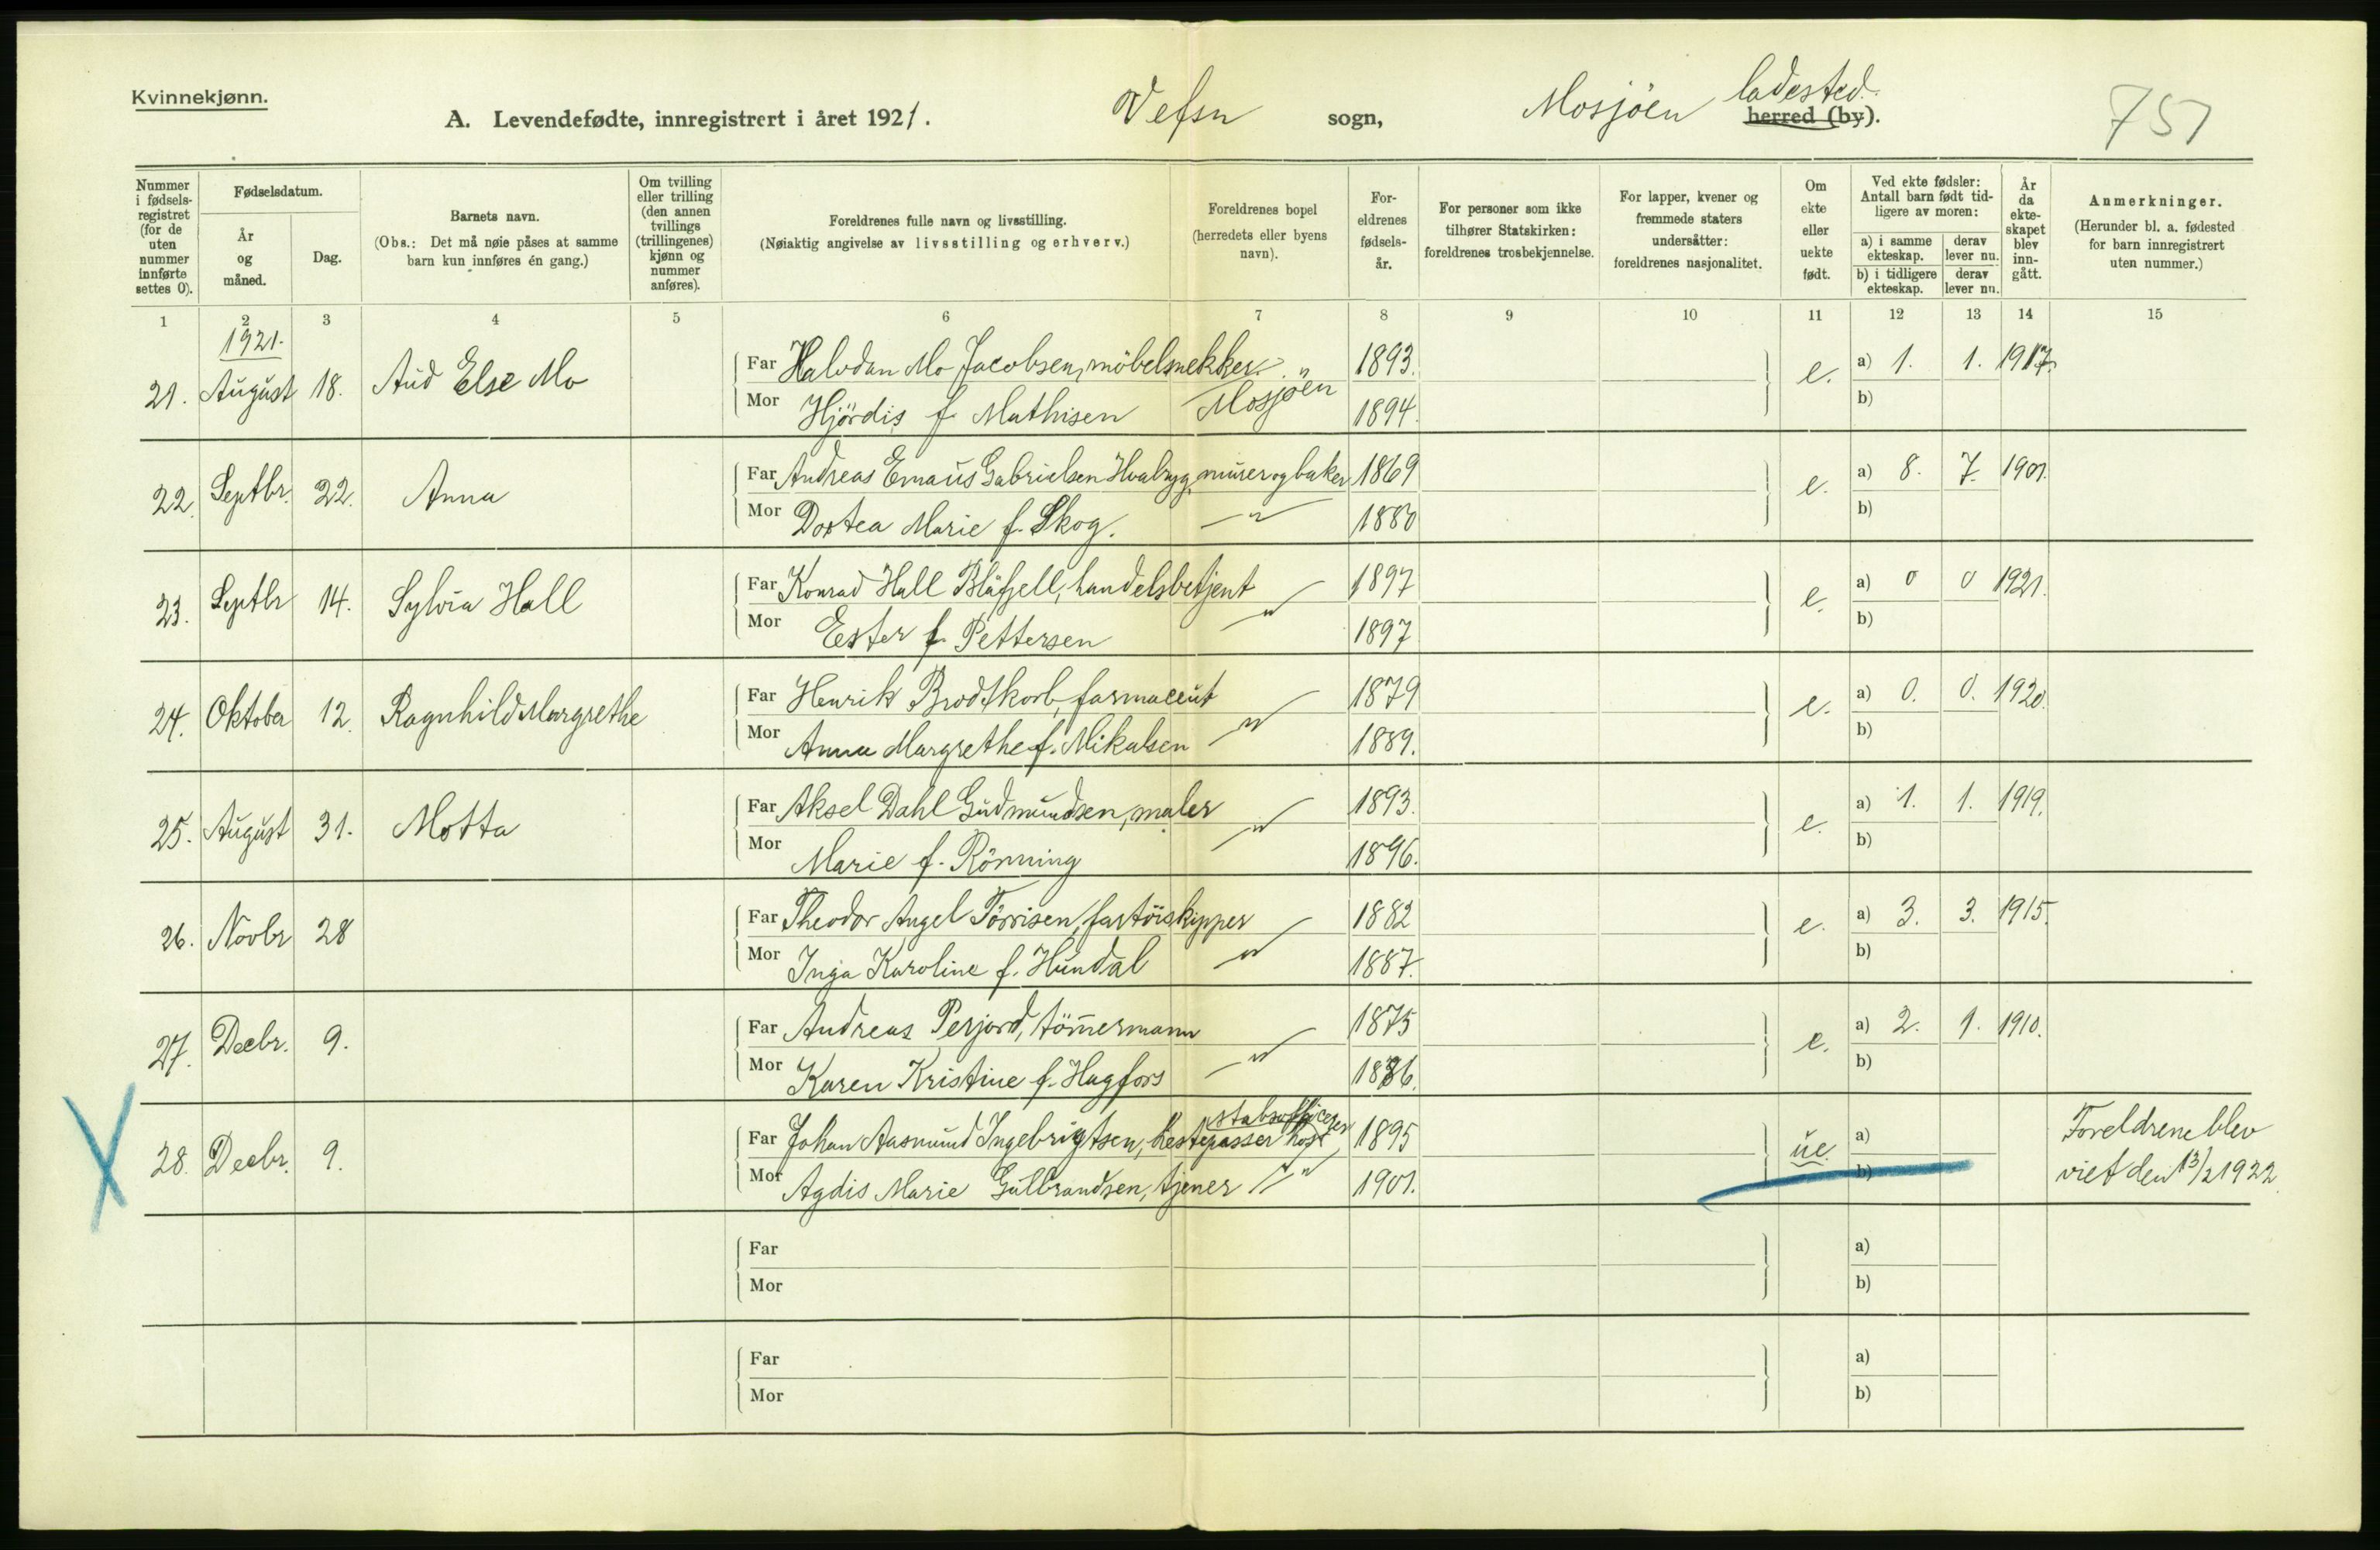 Kvinnekjønn.
A. Levendefødte, innregistrert i året 1921. Vefsn sogn, Mosjöen ladested. herred (by).
751
Nummer i fødselsregistret (for de uten nummer innførte settes 0).
Fødselsdatum.
År og måned.
Dag.
Barnets navn.
(Obs.: Det må nøie påses at samme barn kun innføres én gang.)
Om tvilling eller trilling (den annen tvillings (trillingenes) kjønn og nummer anføres).
Foreldrenes fulle navn og livsstilling.
(Nøiaktig angivelse av livsstilling og erhverv.)
Foreldrenes bopel (herredets eller byens navn).
Foreldrenes fødselsår.
For personer som ikke tilhører Statskirken: foreldrenes trosbekjennelse.
For lapper, kvener og fremmede staters undersåtter: foreldrenes nasjonalitet.
Om ekte eller uekte født.
Ved ekte fødsler: Antall barn født tidligere av moren:
a) i samme ekteskap. derav lever nu.
b) i tidligere ekteskap. derav lever nu.
År da ekteskapet blev inngått.
Anmerkninger.
(Herunder bl. a. fødested for barn innregistrert uten nummer.)
1 2 3 4 5 6 7 8 9 10 11 12 13 14 15
1921.
21. August 18. Aud Else Mo Far Halvdan Mo Jacobsen, möbelsnekker 1893. e. a) 1. 1. 1917.
Mor Hjördis f. Mathisen Mosjöen 1894. b)
22. Septbr. 22. Anna Far Andreas Emaus Gabrielsen Hvalryg, murer og baker 1869 e. a) 8. 7. 1901.
Mor Dortea Marie f. Skog. —"— 1880 b)
23. Septbr 14. Sylvia Hall Far Konrad Hall Blåfjell, handelsbetjent 1897 e. a) 0 0 1921.
Mor Ester f. Pettersen —"— 1897 b)
24. Oktober 12. Ragnhild Margrethe Far Henrik Brodtkorb, farmaceut 1879 e. a) 0. 0. 1920.
Mor Anna Margrethe f. Mikalsen —"— 1889. b)
25. August 31. Motta Far Aksel Dahl Gudmundsen, maler 1893. e. a) 1. 1. 1919.
Mor Marie f. Rönning —"— 1896. b)
26. Novbr 28 Far Theodor Angel Törrisen, fartöiskipper 1882 e. a) 3. 3. 1915.
Mor Inga Karoline f. Hundal —"— 1887. b)
27. Decbr. 9. Far Andreas Perjord, tömmermann 1875 e. a) 2. 1. 1910.
Mor Karen Kristine f. Hagfors —"— 1886. b)
stabsofficer
28. Decbr. 9. Far Johan Aasmund Ingebrigtsen, hestepasser hos 1895 ue. a) Foreldrene blev
Mor Agdis Marie Gulbrandsen, tjener —"— 1901. b) viet den 13/2 1922.
Far a)
Mor b)
Far a)
Mor b)